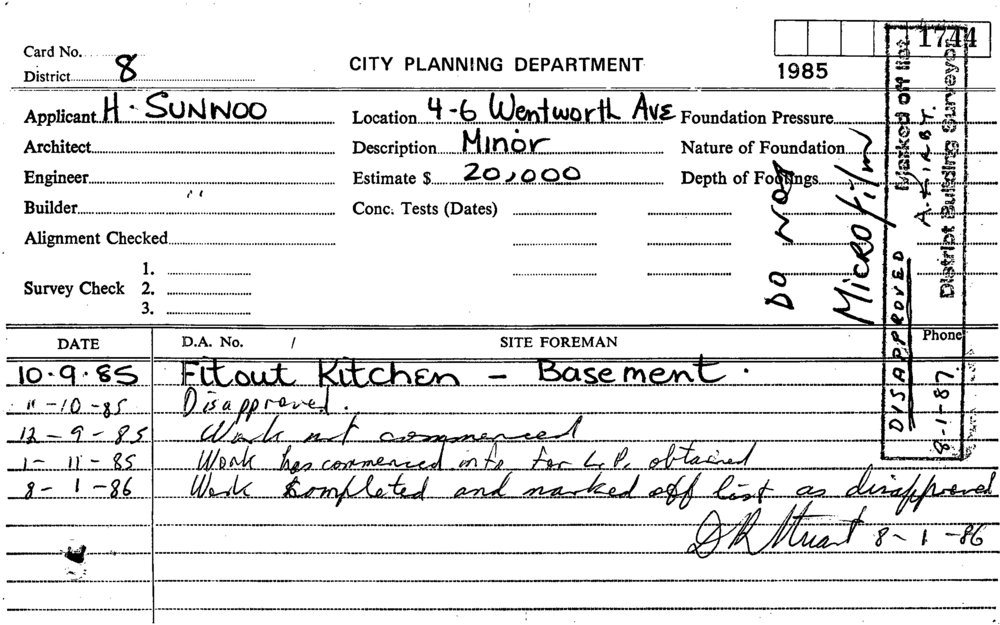 Card No.
District 8
CITY PLANNING DEPARTMENT
1985
1744
Applicant H. SUNWOO
Location 4-6 Wentworth Ave
Foundation Pressure
Architect
Description Minor
Nature of Foundation
Engineer
Estimate $ 20,000
Depth of Footings
Builder
Conc. Tests (Dates)
Alignment Checked
Survey Check
1.
2.
3.
DO NOT
MICROfilm
DISAPPROVED
Marked off list
A. KIRBY.
District Building Surveyor
8-1-87.
DATE
D.A. No. /
SITE FOREMAN
Phone
10.9.85 Fitout Kitchen - Basement.
11-10-85 Disapproved.
12-9-85 Work not commenced
1-11-85 Work has commenced info for obtained
8-1-86 Work completed and marked off list as disapproved
D R Stuart 8-1-86